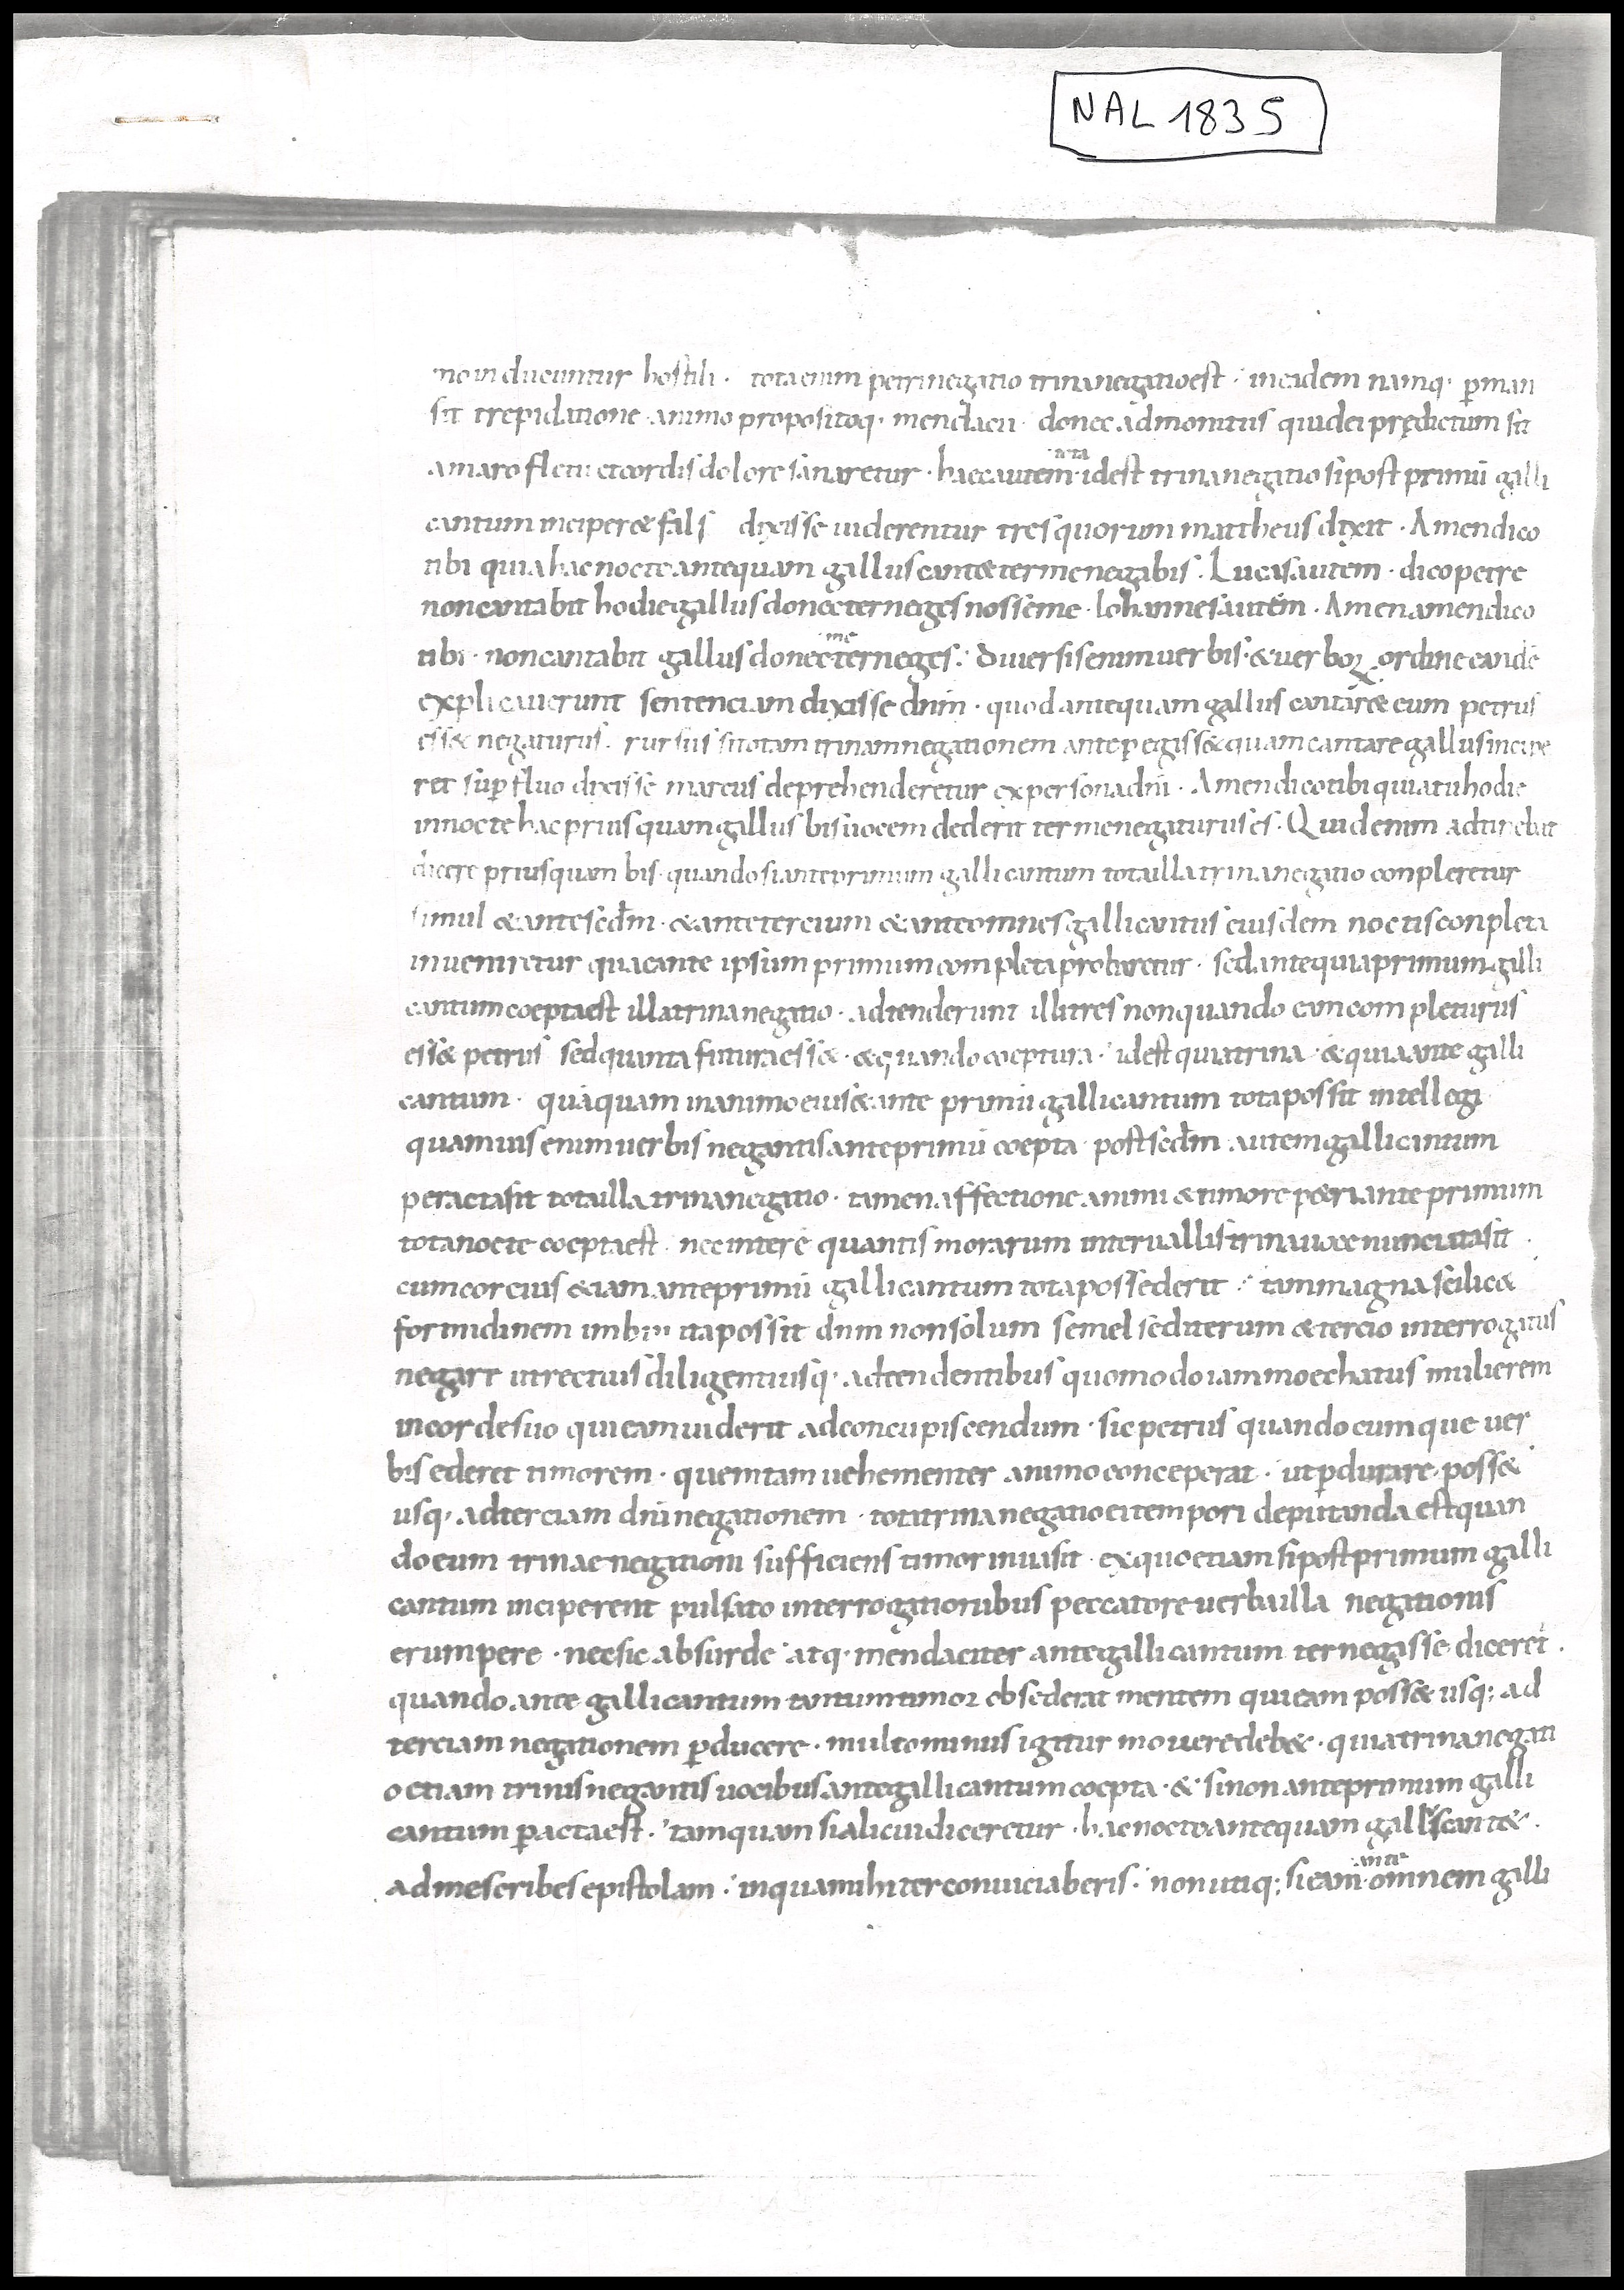 NAL 1835
no inducuntur hostili · tota enim petri negatio trina negatio est · in eadem namq· ꝑman
sit trepidatione animo propositoq· mendacii · donec admonitus quid ei prędictum sit
amaro fletu et cordis dolore sanaretur · haec autem · idest trina negatio si post primū galli
cantum inciper& fals dixisse uiderentur tres quorum mattheus dixit · Amen dico
tibi quia hac nocte antequam gallus cant& ter me negabis · Lucas autem · dico petre
non cantabit hodie gallus donec ter neges nosse me · Iohannes autem · Amen amen dico
tibi · non cantabit gallus donec me ter neges · Diuersis enim uerbis · & uerboꝝ ordine eandē
explicauerunt sentenciam dixisse dnm · quod antequam gallus cantar& eum petrus
ess& negaturus · rursus si totam trinam negationem ante ꝑegiss& quam cantare gallus incipe
ret suꝑfluo dixisse marcus deprehenderetur ex persona dni · Amen dico tibi quia tu hodie
in nocte hac prius quam gallus bis uocem dederit ter me negaturus es · Quid enim adtinebat
dicere prius quam bis · quando si ante primum galli cantum tota illa trina negatio conpleretur
simul & ante secdm · & ante tercium & ante omnes galli cantus eiusdem noctis conpleta
inueniretur quae ante ipsum primum completa probaretur · sed ante quia primum galli
cantum coepta est illa trina negatio · adtenderunt illi tres non quando eam completurus
ess& petrus sed quanta futura ess& · & quando coeptura · idest quia trina · & quia ante galli
cantum · quāquam in animo eius & ante primū galli cantum tota possit intellegi
quamuis enim uerbis negantis ante primū coepta · post secdm autem galli cantum
peracta sit tota illa trina negatio · tamen affectione animi & timore p&ri ante primum
tota nocte coepta est · nec interē quantis morarum interuallis trina uoce nunciata sit ·
cum cor eius & iam ante primū galli cantum tota possederit · tam magna scilic&
formidinem imbui ita possit dnm non solum semel sed iterum & tercio interrogatus
negare ut rectius diligentiusq· adtendentibus quomodo iam moechatus mulierem
in corde suo qui eam uiderit ad concupiscendum · sic petrus quandocumque uer
bis ederet timorem · quem tam uehementer animo conceperat · ut ꝑdurare poss&
usq· ad terciam dni negationem · tota trina negatio ei tempori deputanda est quan
do eum trinae negationi sufficiens timor inuasit · ex quo etiam si post primum galli
cantum inciperent pulsato interrogationibus peccatore uerba illa negationis
erumpere · nec sic absurde atq· mendaciter ante galli cantum ter negasse diceret ·
quando ante galli cantum tantum timor obsederat mentem qui eam poss& usq; ad
terciam negationem ꝑducere · multo minus igitur mouere deb& · quia trina negati
o etiam trinis negantis uocibus ante galli cantum coepta · & si non ante primum galli
cantum ꝑacta est · tamquam si alicui diceretur · hac nocte antequam gallus cant& ·
ad me scribes epistolam · in qua mihi ter conuiciaberis · non utiq; si eam ante omnem galli